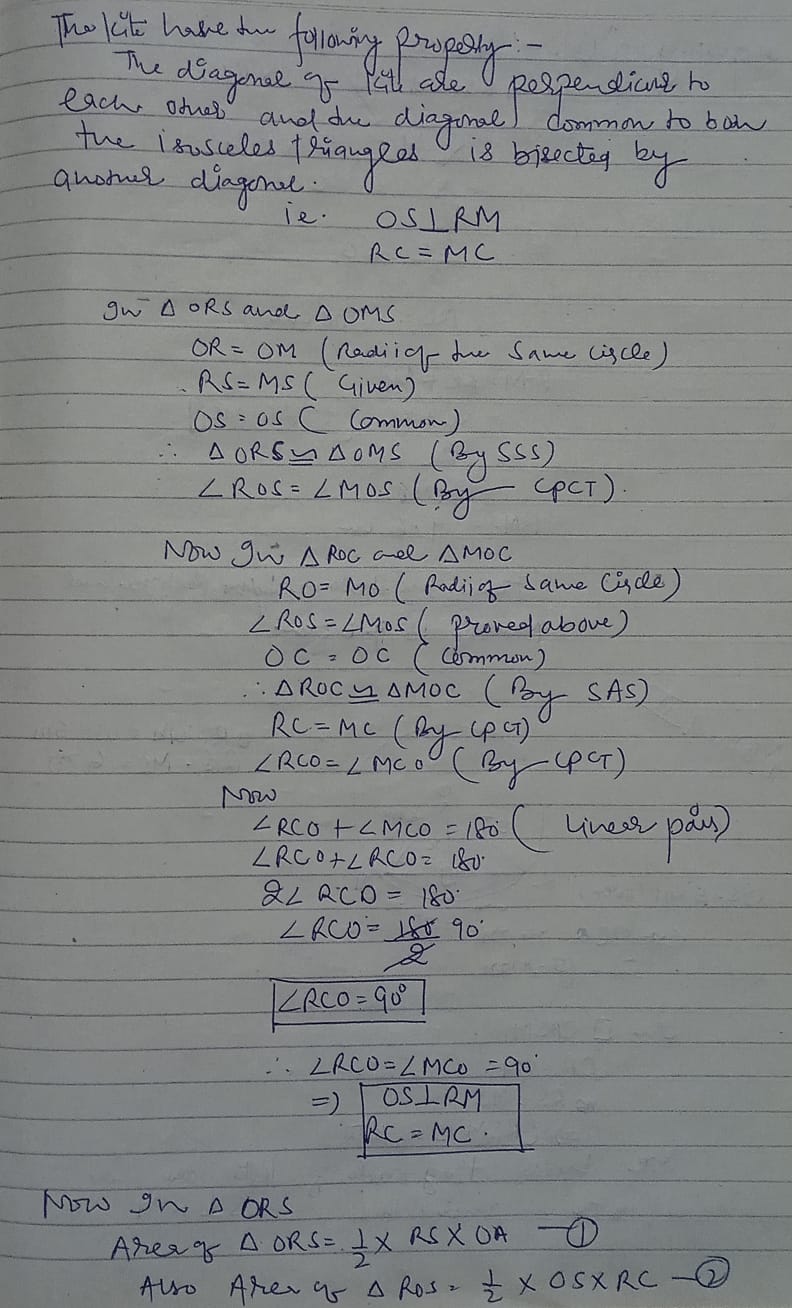 The kite have the following property:-
The diagonal of kite are perpendicular to
each other and the diagonal common to both
the isosceles triangles is bisected by
another diagonal.
ie. OS⊥RM
RC = MC
In Δ ORS and Δ OMS
OR = OM (Radii of the same circle)
RS = MS (Given)
OS = OS (Common)
∴ Δ ORS ≅ Δ OMS (By SSS)
∠ROS = ∠MOS (By CPCT).
Now In Δ ROC and Δ MOC
RO = MO (Radii of same circle)
∠ROS = ∠MOS (proved above)
OC = OC (Common)
∴ ΔROC ≅ ΔMOC (By SAS)
RC = MC (By CPCT)
∠RCO = ∠MCO (By CPCT)
Now
∠RCO + ∠MCO = 180° (Linear pair)
∠RCO + ∠RCO = 180°
2∠RCO = 180°
∠RCO = 180 90°
2
∠RCO = 90°
∴ ∠RCO = ∠MCO = 90°
=) OS⊥RM
RC = MC.
Now In Δ ORS
Area of Δ ORS = 1/2 × RS × OA —①
Also Area of Δ ROS = 1/2 × OS × RC —②